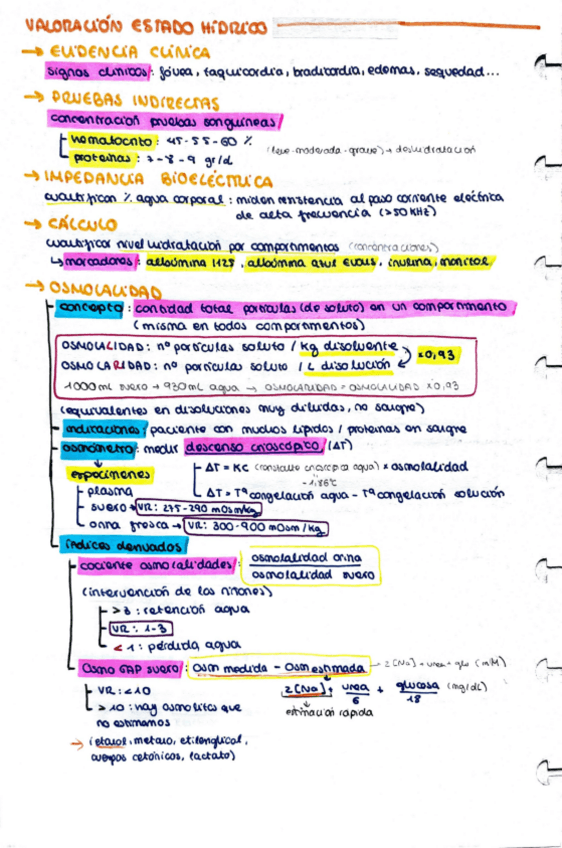 VALORACIÓN ESTADO HÍDRICO
→ EVIDENCIA CLÍNICA
signos clínicos: fóvea, taquicardia, bradicardia, edemas, sequedad...
→ PRUEBAS INDIRECTAS
concentración pruebas sanguíneas
hematocrito: 45-55-60 %
(leve-moderada-grave) → deshidratación
proteínas: 7-8-9 gr/dl
→ IMPEDANCIA BIOELÉCTRICA
cuantifican % agua corporal: miden resistencia al paso corriente eléctrica
de alta frecuencia (>50 KHz)
→ CÁLCULO
cuantificar nivel hidratación por compartimentos (concentraciones)
↳ marcadores: albúmina I125, albúmina azul Evans, inulina, manitol
→ OSMOLALIDAD
concepto: cantidad total partículas (de soluto) en un compartimento
(misma en todos compartimentos)
OSMOLALIDAD: nº partículas soluto / Kg disolvente
OSMOLARIDAD: nº partículas soluto / L disolución
x0,93
1000mL suero → 930mL agua → OSMOLARIDAD = OSMOLALIDAD x0,93
(equivalentes en disoluciones muy diluidas, no sangre)
indicaciones: paciente con muchos lípidos / proteínas en sangre
osmómetro: medir descenso crioscópico (ΔT)
ΔT = KC (constante crioscópica agua) x osmolalidad
-1,86°C
ΔT = Tª congelación agua - Tª congelación solución
especímenes
plasma
suero → VR: 275-290 mOsm/kg
orina fresca → VR: 300-900 mOsm/kg
índices derivados
cociente osmolalidades: osmolalidad orina
osmolalidad suero
(intervención de los riñones)
> 3: retención agua
VR: 1-3
< 1: pérdida agua
Osmo GAP suero: Osm medida - Osm estimada → 2[Na] + urea + glu (mM)
VR: <10
2[Na] + urea/6 + glucosa/18 (mg/dL)
> 10: hay osmolitos que
no estimamos
estimación rápida
→ (etanol, metanol, etilenglicol,
cuerpos cetónicos, lactato)